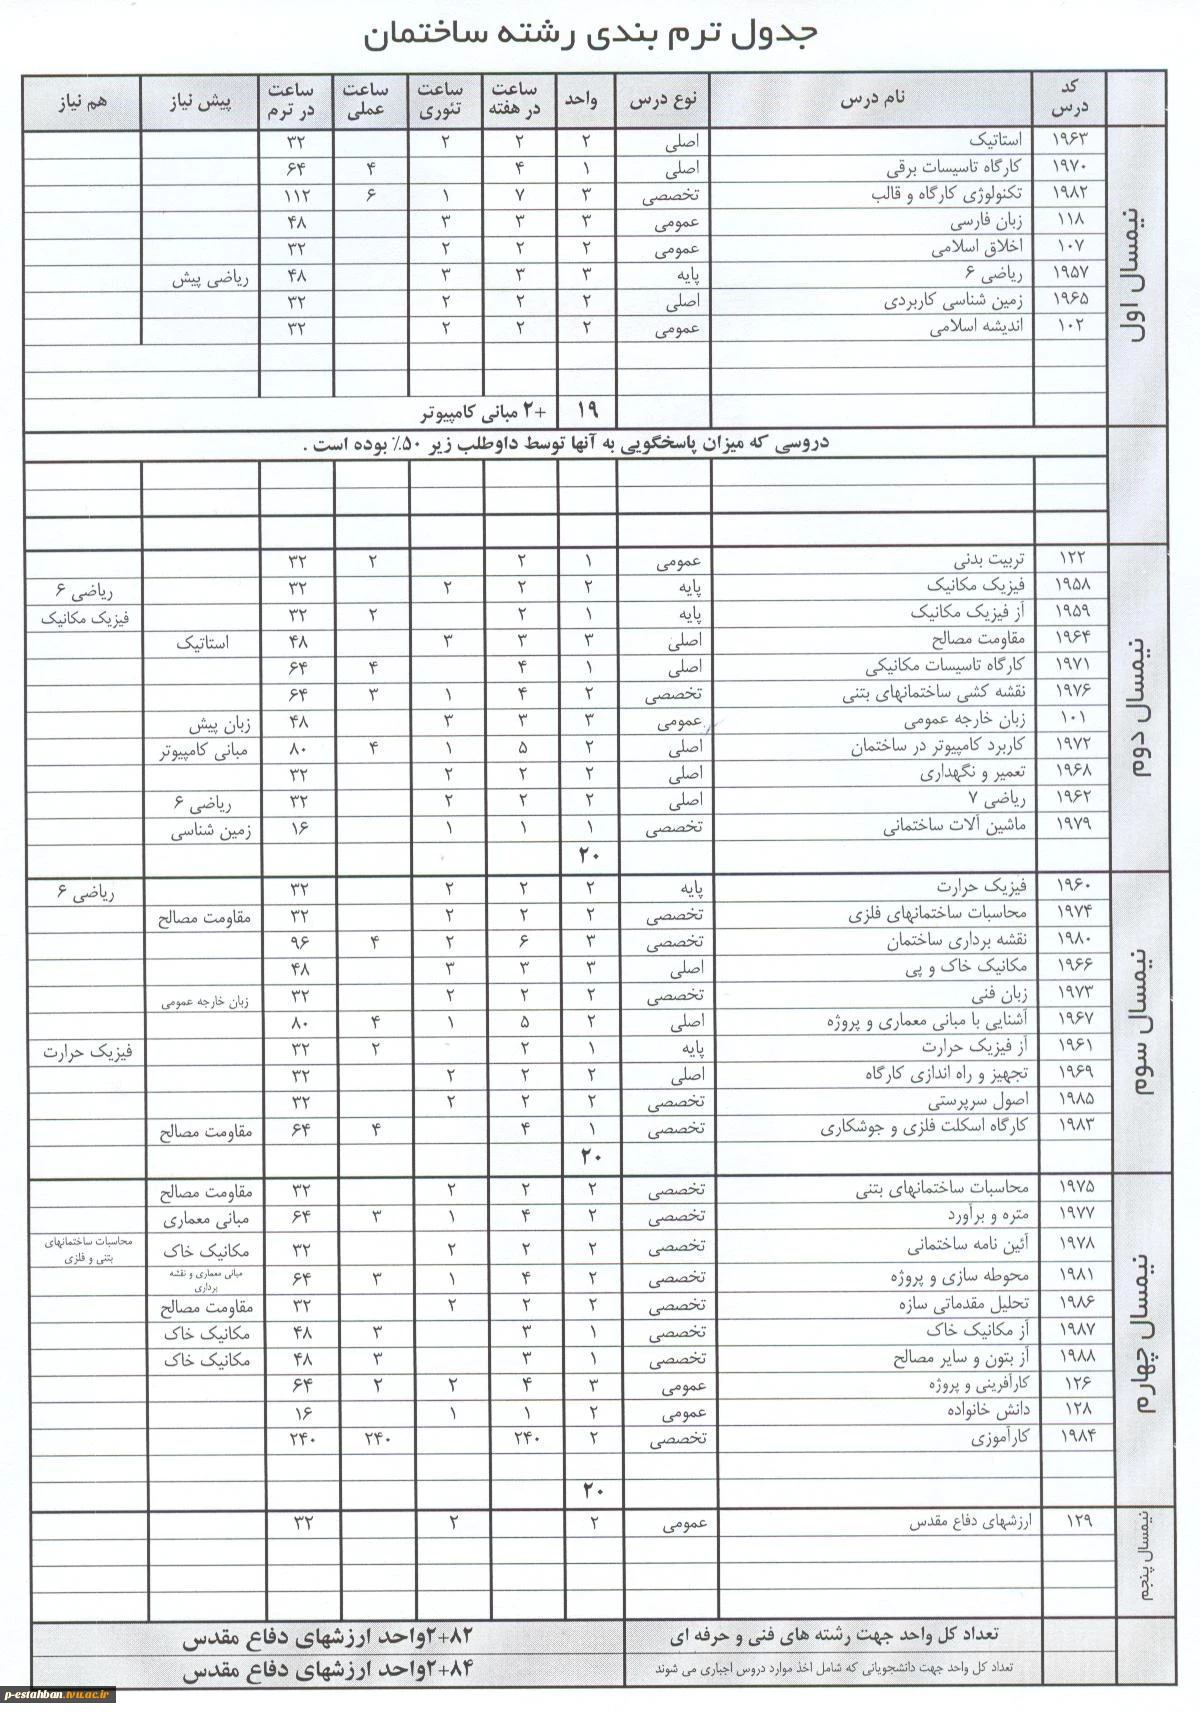 جدول ترم بندی رشته ساختمان
کد درس نام درس نوع درس واحد ساعت در هفته ساعت تئوری ساعت عملی ساعت در ترم پیش نیاز هم نیاز
نیمسال اول
۱۹۶۳ استاتیک اصلی ۲ ۲ ۲ ۳۲
۱۹۷۰ کارگاه تاسیسات برقی اصلی ۱ ۴ ۴ ۶۴
۱۹۸۲ تکنولوژی کارگاه و قالب تخصصی ۳ ۷ ۱ ۶ ۱۱۲
۱۱۸ زبان فارسی عمومی ۳ ۳ ۳ ۴۸
۱۰۷ اخلاق اسلامی عمومی ۲ ۲ ۲ ۳۲
۱۹۵۷ ریاضی ۶ پایه ۳ ۳ ۳ ۴۸ ریاضی پیش
۱۹۶۵ زمین شناسی کاربردی اصلی ۲ ۲ ۲ ۳۲
۱۰۲ اندیشه اسلامی عمومی ۲ ۲ ۲ ۳۲
۱۹ +۲ مبانی کامپیوتر
دروسی که میزان پاسخگویی به آنها توسط داوطلب زیر ۵۰٪ بوده است .
نیمسال دوم
۱۲۲ تربیت بدنی عمومی ۱ ۲ ۲ ۳۲
۱۹۵۸ فیزیک مکانیک پایه ۲ ۲ ۲ ۳۲ ریاضی ۶
۱۹۵۹ آز فیزیک مکانیک پایه ۱ ۲ ۲ ۳۲ فیزیک مکانیک
۱۹۶۴ مقاومت مصالح اصلی ۳ ۳ ۳ ۴۸ استاتیک
۱۹۷۱ کارگاه تاسیسات مکانیکی اصلی ۱ ۴ ۴ ۶۴
۱۹۷۶ نقشه کشی ساختمانهای بتنی تخصصی ۲ ۴ ۱ ۳ ۶۴
۱۰۱ زبان خارجه عمومی عمومی ۳ ۳ ۳ ۴۸ زبان پیش
۱۹۷۲ کاربرد کامپیوتر در ساختمان اصلی ۲ ۵ ۱ ۴ ۸۰ مبانی کامپیوتر
۱۹۶۸ تعمیر و نگهداری اصلی ۲ ۲ ۲ ۳۲
۱۹۶۲ ریاضی ۷ اصلی ۲ ۲ ۲ ۳۲ ریاضی ۶
۱۹۷۹ ماشین آلات ساختمانی تخصصی ۱ ۱ ۱ ۱۶ زمین شناسی
۲۰
نیمسال سوم
۱۹۶۰ فیزیک حرارت پایه ۲ ۲ ۲ ۳۲ ریاضی ۶
۱۹۷۴ محاسبات ساختمانهای فلزی تخصصی ۲ ۲ ۲ ۳۲ مقاومت مصالح
۱۹۸۰ نقشه برداری ساختمان تخصصی ۳ ۶ ۲ ۴ ۹۶
۱۹۶۶ مکانیک خاک و پی اصلی ۳ ۳ ۳ ۴۸
۱۹۷۳ زبان فنی تخصصی ۲ ۲ ۲ ۳۲ زبان خارجه عمومی
۱۹۶۷ آشنایی با مبانی معماری و پروژه اصلی ۲ ۵ ۱ ۴ ۸۰
۱۹۶۱ آز فیزیک حرارت پایه ۱ ۲ ۲ ۳۲ فیزیک حرارت
۱۹۶۹ تجهیز و راه اندازی کارگاه اصلی ۲ ۲ ۲ ۳۲
۱۹۸۵ اصول سرپرستی تخصصی ۲ ۲ ۲ ۳۲
۱۹۸۳ کارگاه اسکلت فلزی و جوشکاری تخصصی ۱ ۴ ۴ ۶۴ مقاومت مصالح
۲۰
نیمسال چهارم
۱۹۷۵ محاسبات ساختمانهای بتنی تخصصی ۲ ۲ ۲ ۳۲ مقاومت مصالح
۱۹۷۷ متره و برآورد تخصصی ۲ ۴ ۱ ۳ ۶۴ مبانی معماری
۱۹۷۸ آئین نامه ساختمانی تخصصی ۲ ۲ ۲ ۳۲ مکانیک خاک محاسبات ساختمانهای بتنی و فلزی
۱۹۸۱ محوطه سازی و پروژه تخصصی ۲ ۴ ۱ ۳ ۶۴ مبانی معماری و نقشه برداری
۱۹۸۶ تحلیل مقدماتی سازه تخصصی ۲ ۲ ۲ ۳۲ مقاومت مصالح
۱۹۸۷ آز مکانیک خاک تخصصی ۱ ۳ ۳ ۴۸ مکانیک خاک
۱۹۸۸ آز بتون و سایر مصالح تخصصی ۱ ۳ ۳ ۴۸ مکانیک خاک
۱۲۶ کارآفرینی و پروژه عمومی ۳ ۴ ۲ ۲ ۶۴
۱۲۸ دانش خانواده عمومی ۲ ۱ ۱ ۱۶
۱۹۸۴ کارآموزی تخصصی ۲ ۲۴۰ ۲۴۰ ۲۴۰
۲۰
نیمسال پنجم
۱۲۹ ارزشهای دفاع مقدس عمومی ۲ ۲ ۳۲
تعداد کل واحد جهت رشته های فنی و حرفه ای ۸۲+۲واحد ارزشهای دفاع مقدس
تعداد کل واحد جهت دانشجویانی که شامل اخذ موارد دروس اجباری می شوند ۸۴+۲واحد ارزشهای دفاع مقدس
p-estahban.tvu.ac.ir